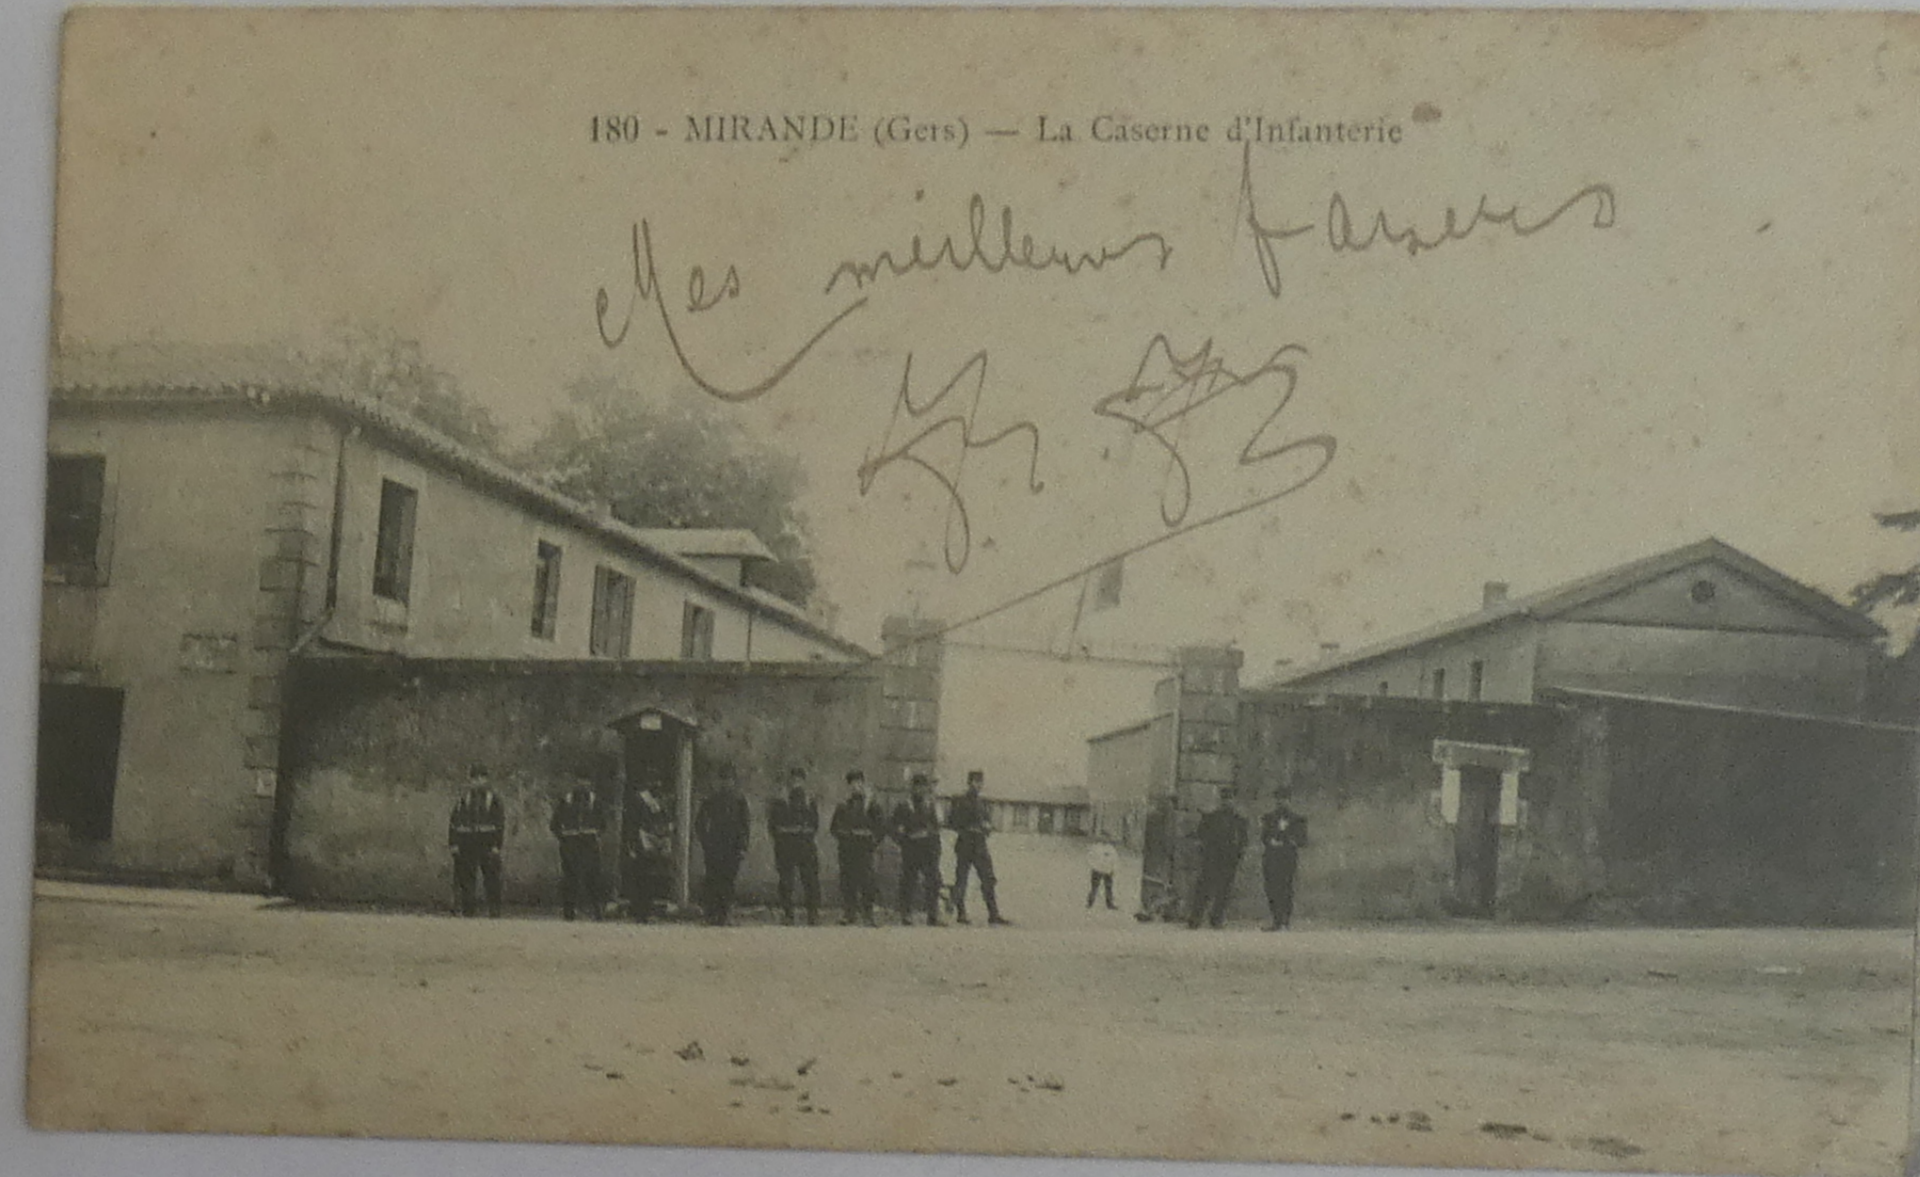 180 - MIRANDE (Gers) — La Caserne d'Infanterie
Mes meilleurs